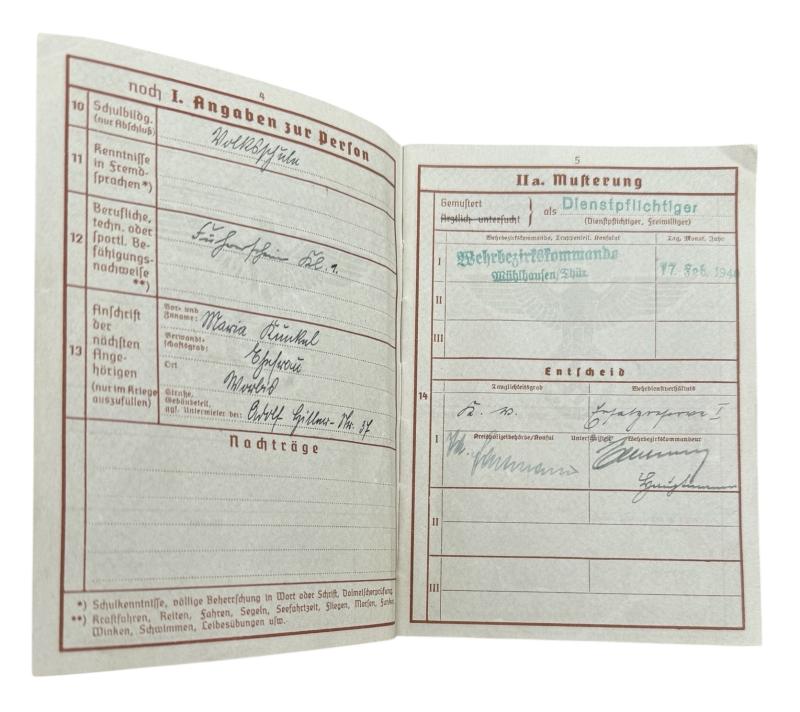 4
noch I. Angaben zur Person
10 Schulbildg. (nur Abschluß)
Volksschule
11 Kenntnisse in Fremdsprachen*)
12 Berufliche, techn. oder sportl. Befähigungsnachweise **)
Führerschein Kl. 1.
13 Anschrift der nächsten Angehörigen (nur im Kriege auszufüllen)
Vor- und Zuname: Maria Kunkel
Verwandtschaftsgrad: Ehefrau
Ort Worbis
Straße, Gebäudeteil, ggf. Untermieter bei: Adolf Hitler-Str. 37
Nachträge
*) Schulkenntnisse, völlige Beherrschung in Wort oder Schrift, Dolmetscherprüfung
**) Kraftfahren, Reiten, Fahren, Segeln, Seefahrtzeit, Fliegen, Morsen, Funken
Winken, Schwimmen, Leibesübungen usw.
5
II a. Musterung
Gemustert
Ärztlich untersucht
als Dienstpflichtiger
(Dienstpflichtiger, Freiwilliger)
Wehrbezirkskommando, Truppenteil, Konsulat
Tag, Monat, Jahr
I Wehrbezirkskommando
Mühlhausen/Thür.
17. Feb. 194
II
III
Entscheid
14
Tauglichkeitsgrad
Wehrdienstverhältnis
K. v.
Ersatzreserve I
I Kreispolizeibehörde/Konsul
Unterschriften
Wehrbezirkskommandeur
Hauptmann
II
III